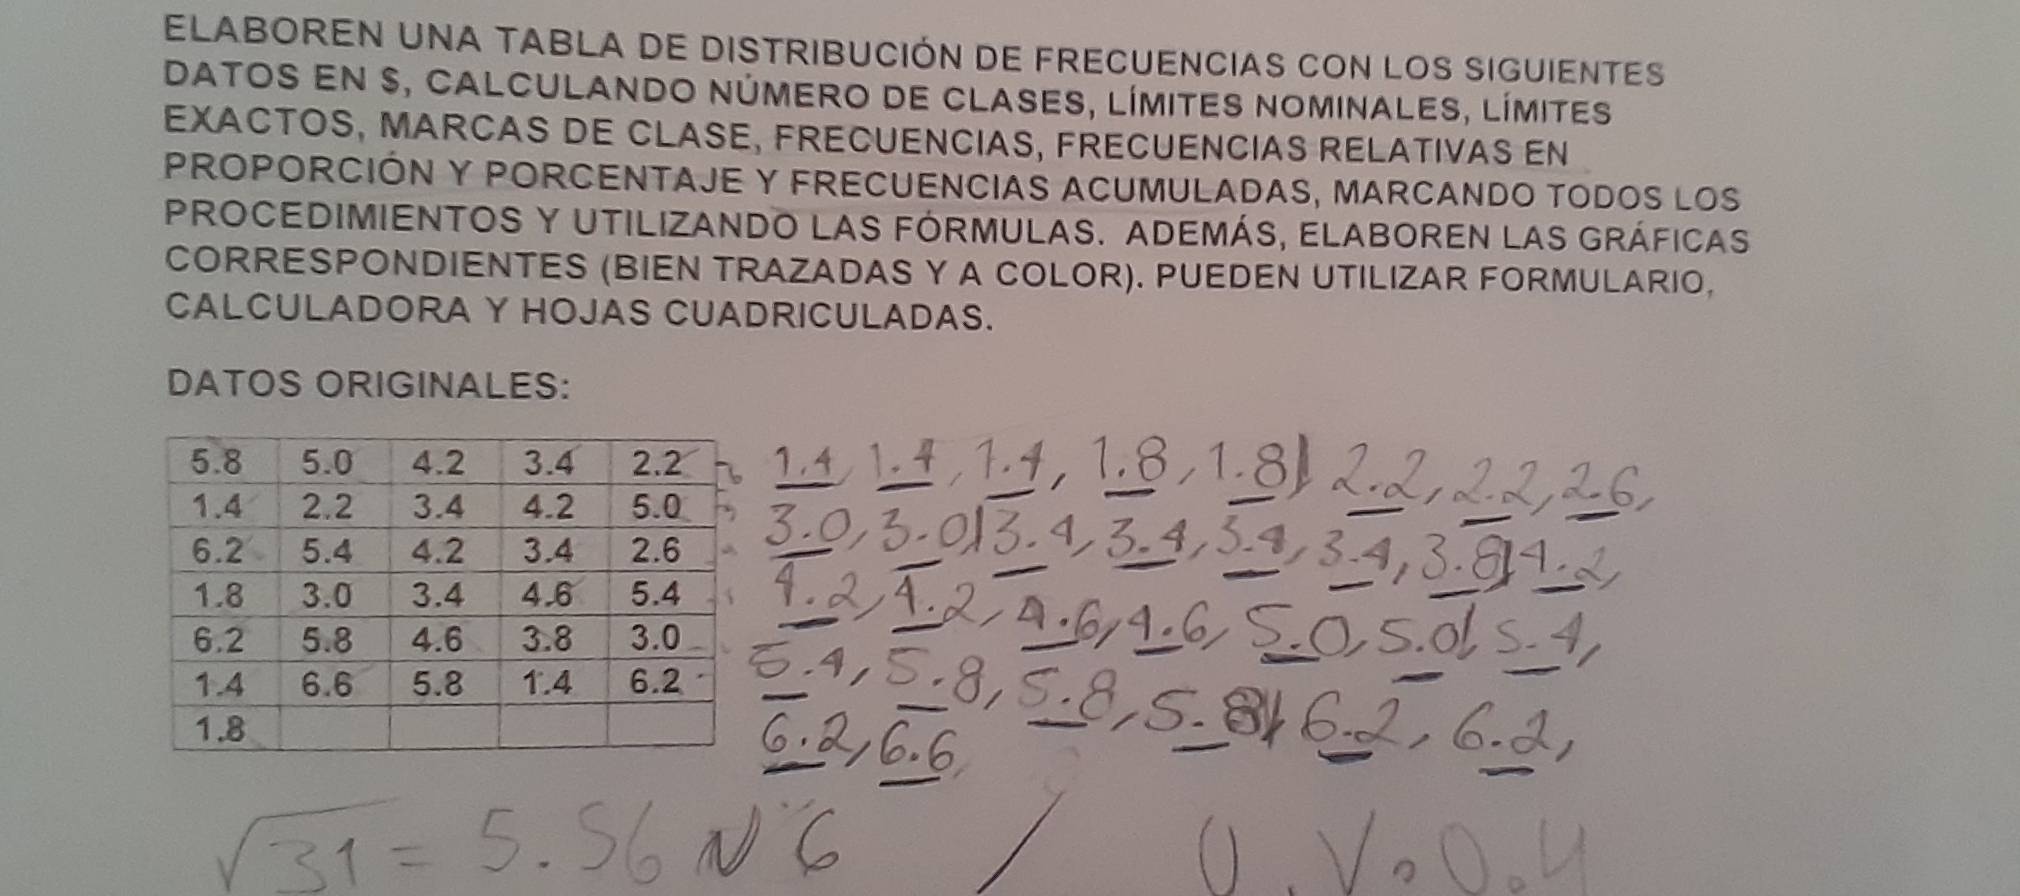 ELABOREN UNA TABLA DE DISTRIBUCIÓN DE FRECUENCIAS CON LOS SIGUIENTES
DATOS EN $, CALCULANDO NÚMERO DE CLASES, LÍMITES NOMINALES, LÍMITES
EXACTOS, MARCAS DE CLASE, FRECUENCIAS, FRECUENCIAS RELATIVAS EN
PROPORCIÓN Y PORCENTAJE Y FRECUENCIAS ACUMULADAS, MARCANDO TODOS LOS
PROCEDIMIENTOS Y UTILIZANDO LAS FÓRMULAS. ADEMÁS, ELABOREN LAS GRÁFICAS
CORRESPONDIENTES (BIEN TRAZADAS Y A COLOR). PUEDEN UTILIZAR FORMULARIO,
CALCULADORA Y HOJAS CUADRICULADAS.
DATOS ORIGINALES:
5.8 5.0 4.2 3.4 2.2
1.4 2.2 3.4 4.2 5.0
6.2 5.4 4.2 3.4 2.6
1.8 3.0 3.4 4.6 5.4
6.2 5.8 4.6 3.8 3.0
1.4 6.6 5.8 1.4 6.2
1.8
1.4, 1.4, 1.4, 1.8, 1.8| 2.2, 2.2, 2.6,
3.0, 3.0|3.4, 3.4, 3.4, 3.4, 3.8|4.2,
4.2, 4.2, 4.6, 4.6, 5.0, 5.0| 5.4,
5.4, 5.8, 5.8, 5.8| 6.2, 6.2,
6.2, 6.6
√31 = 5.56 ~ 6 / U.V. 0.4